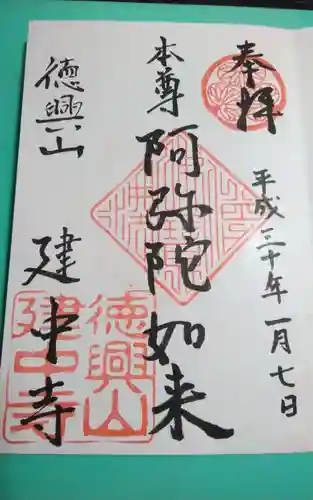 奉拝
平成三十年一月七日
本尊
阿弥陀如来
徳興山
建中寺
徳興山
建中寺